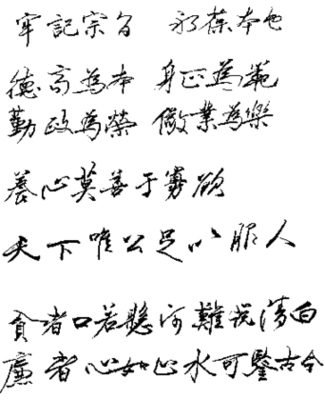 牢記宗旨 永葆本色
德高為本 身正為範
勤政為榮 儆業為樂
養心莫善于寡欲
天下唯公足以服人
貪者口若懸河難說清白
廉者心如止水可鑒古今